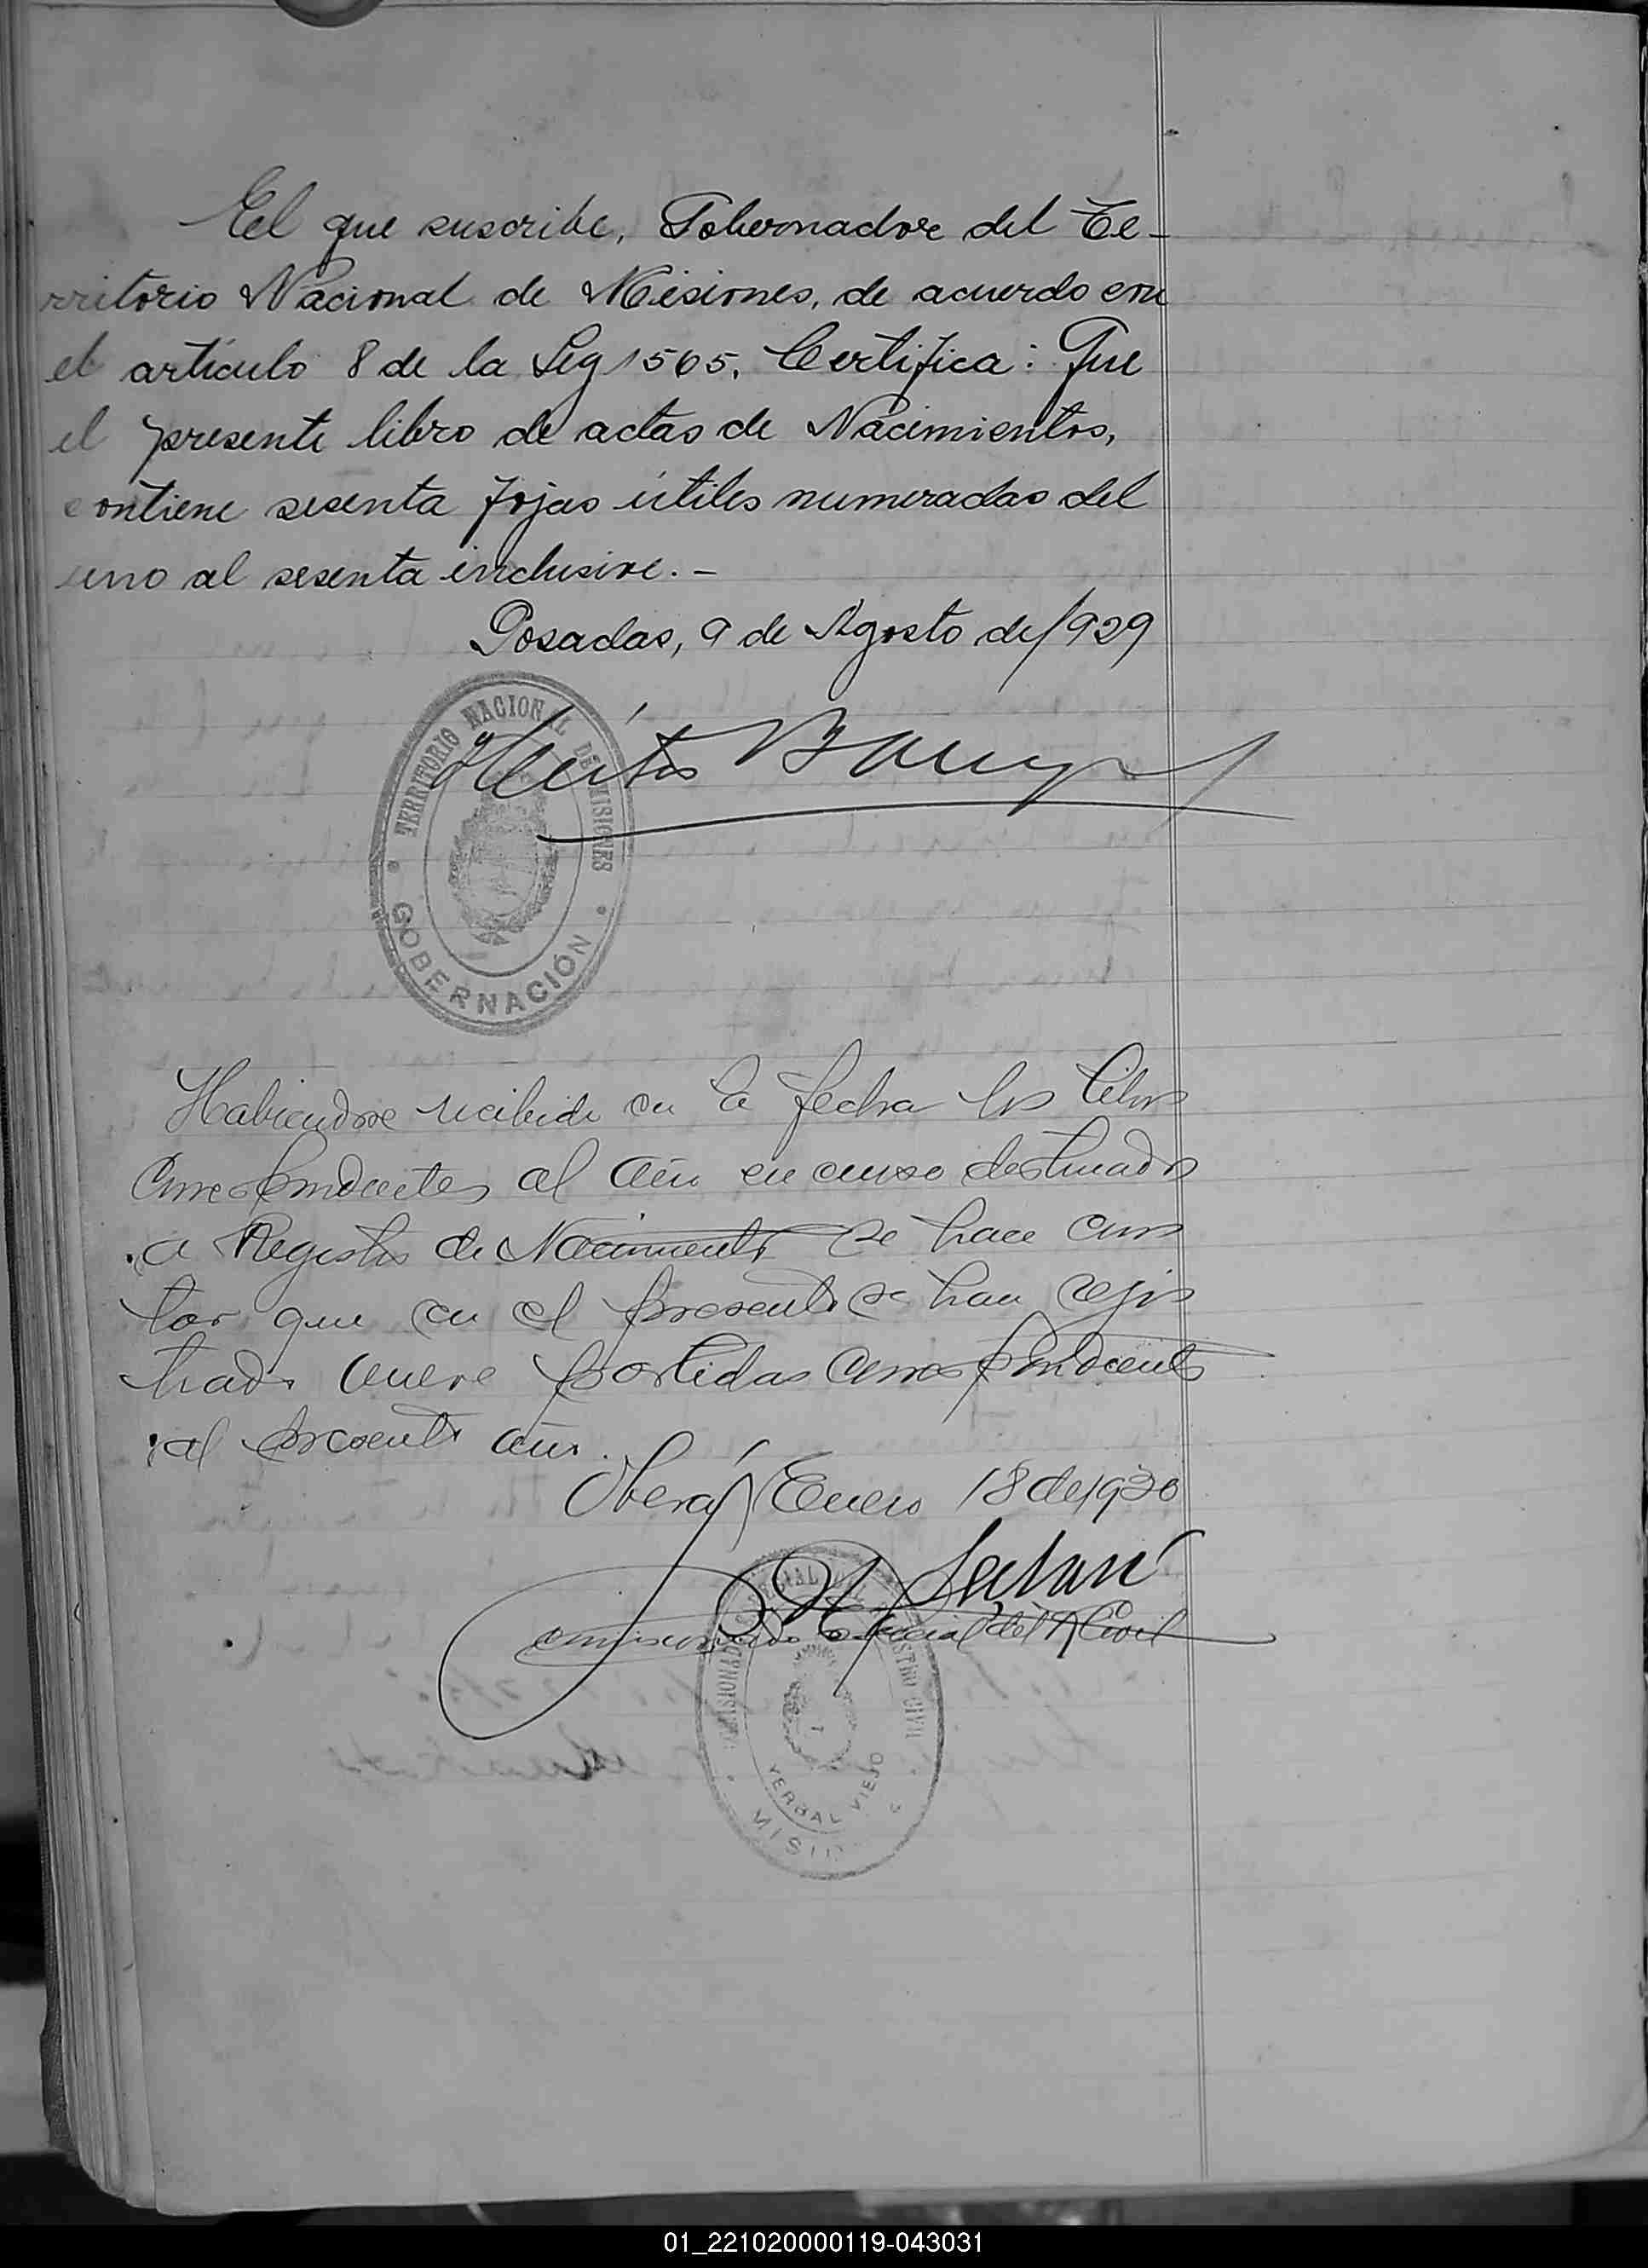 El que suscribe, Gobernador del Te-
rritorio Nacional de Misiones, de acuerdo con
el artículo 8 de la Ley 1565, Certifica: Que
el presente libro de actas de Nacimientos,
contiene sesenta fojas útiles numeradas del
uno al sesenta inclusive. -
Posadas, 9 de Agosto de 1929
TERRITORIO NACIONAL DE MISIONES
GOBERNACIÓN
Habiendose recibido en la fecha los libros
correspondientes al año en curso destinados
a Registros de Nacimientos se hace cons
tar que en el presente se han regis
trado nueve partidas correspondientes
al presente año.
Oberá, Enero 18 de 1930
Comisionado especial del R Civil
YERBAL VIEJO
01_221020000119-043031